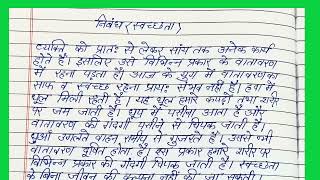 निबंध (स्वच्छता)
व्यक्ति को प्रातः से लेकर सांय तक अनेक कार्य
होते हैं। इसलिए उसे विभिन्न प्रकार के वातावरण
में रहना पड़ता है। आज के युग में वातावरण का
साफ व स्वच्छ रहना प्रायः संभव नहीं है। हवा में
धूल मिली रहती है। यह धूल हमारे कपड़ों तथा शरीर
पर जम जाती है। धूप में पसीना आता है और
वातावरण की गंदगी पसीने से चिपक जाती है।
धुआँ उगलते वाहन समीप से गुजरते हैं। उससे भी
वातावरण दूषित होता है। इस प्रकार हमारे शरीर पर
विभिन्न प्रकार की गंदगी चिपक जाती है। स्वच्छता
के बिना जीवन की कल्पना नहीं की जा सकती।